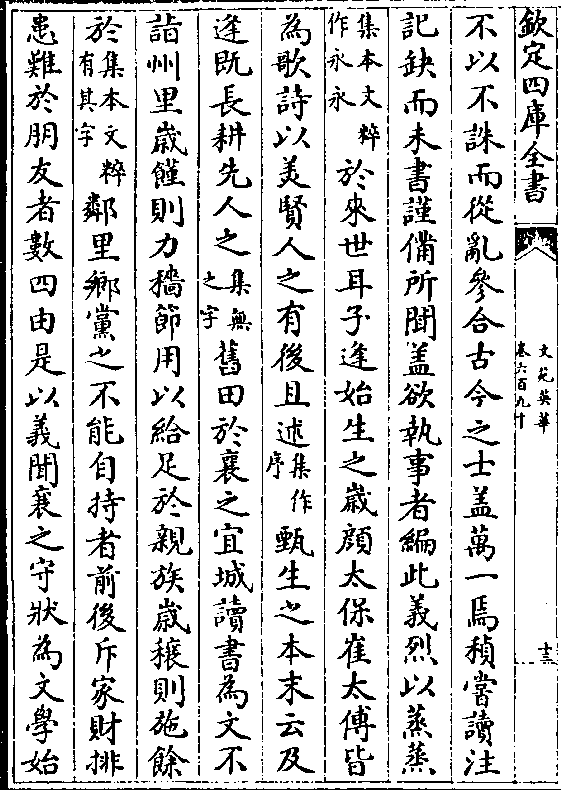 欽定四庫全書
文苑英華
卷六百九十
十三
不以不誅而從亂參合古今之士盖萬一焉稹嘗讀注
記缺而未書謹備所聞盖欲執事者編此義烈以蒸蒸
集本文粹作永永於來世耳子逢始生之歳顔太保崔太傅皆
為歌詩以美賢人之有後且述集作序甄生之本末云及
逢既長耕先人之集無之字舊田於襄之宜城讀書為文不
詣州里歳饉則力穡節用以給足於親族歳穰則施餘
於集本文粹有其字鄰里鄉黨之不能自持者前後斥家財排
患難於朋友者數四由是以義聞襄之守狀為文學始